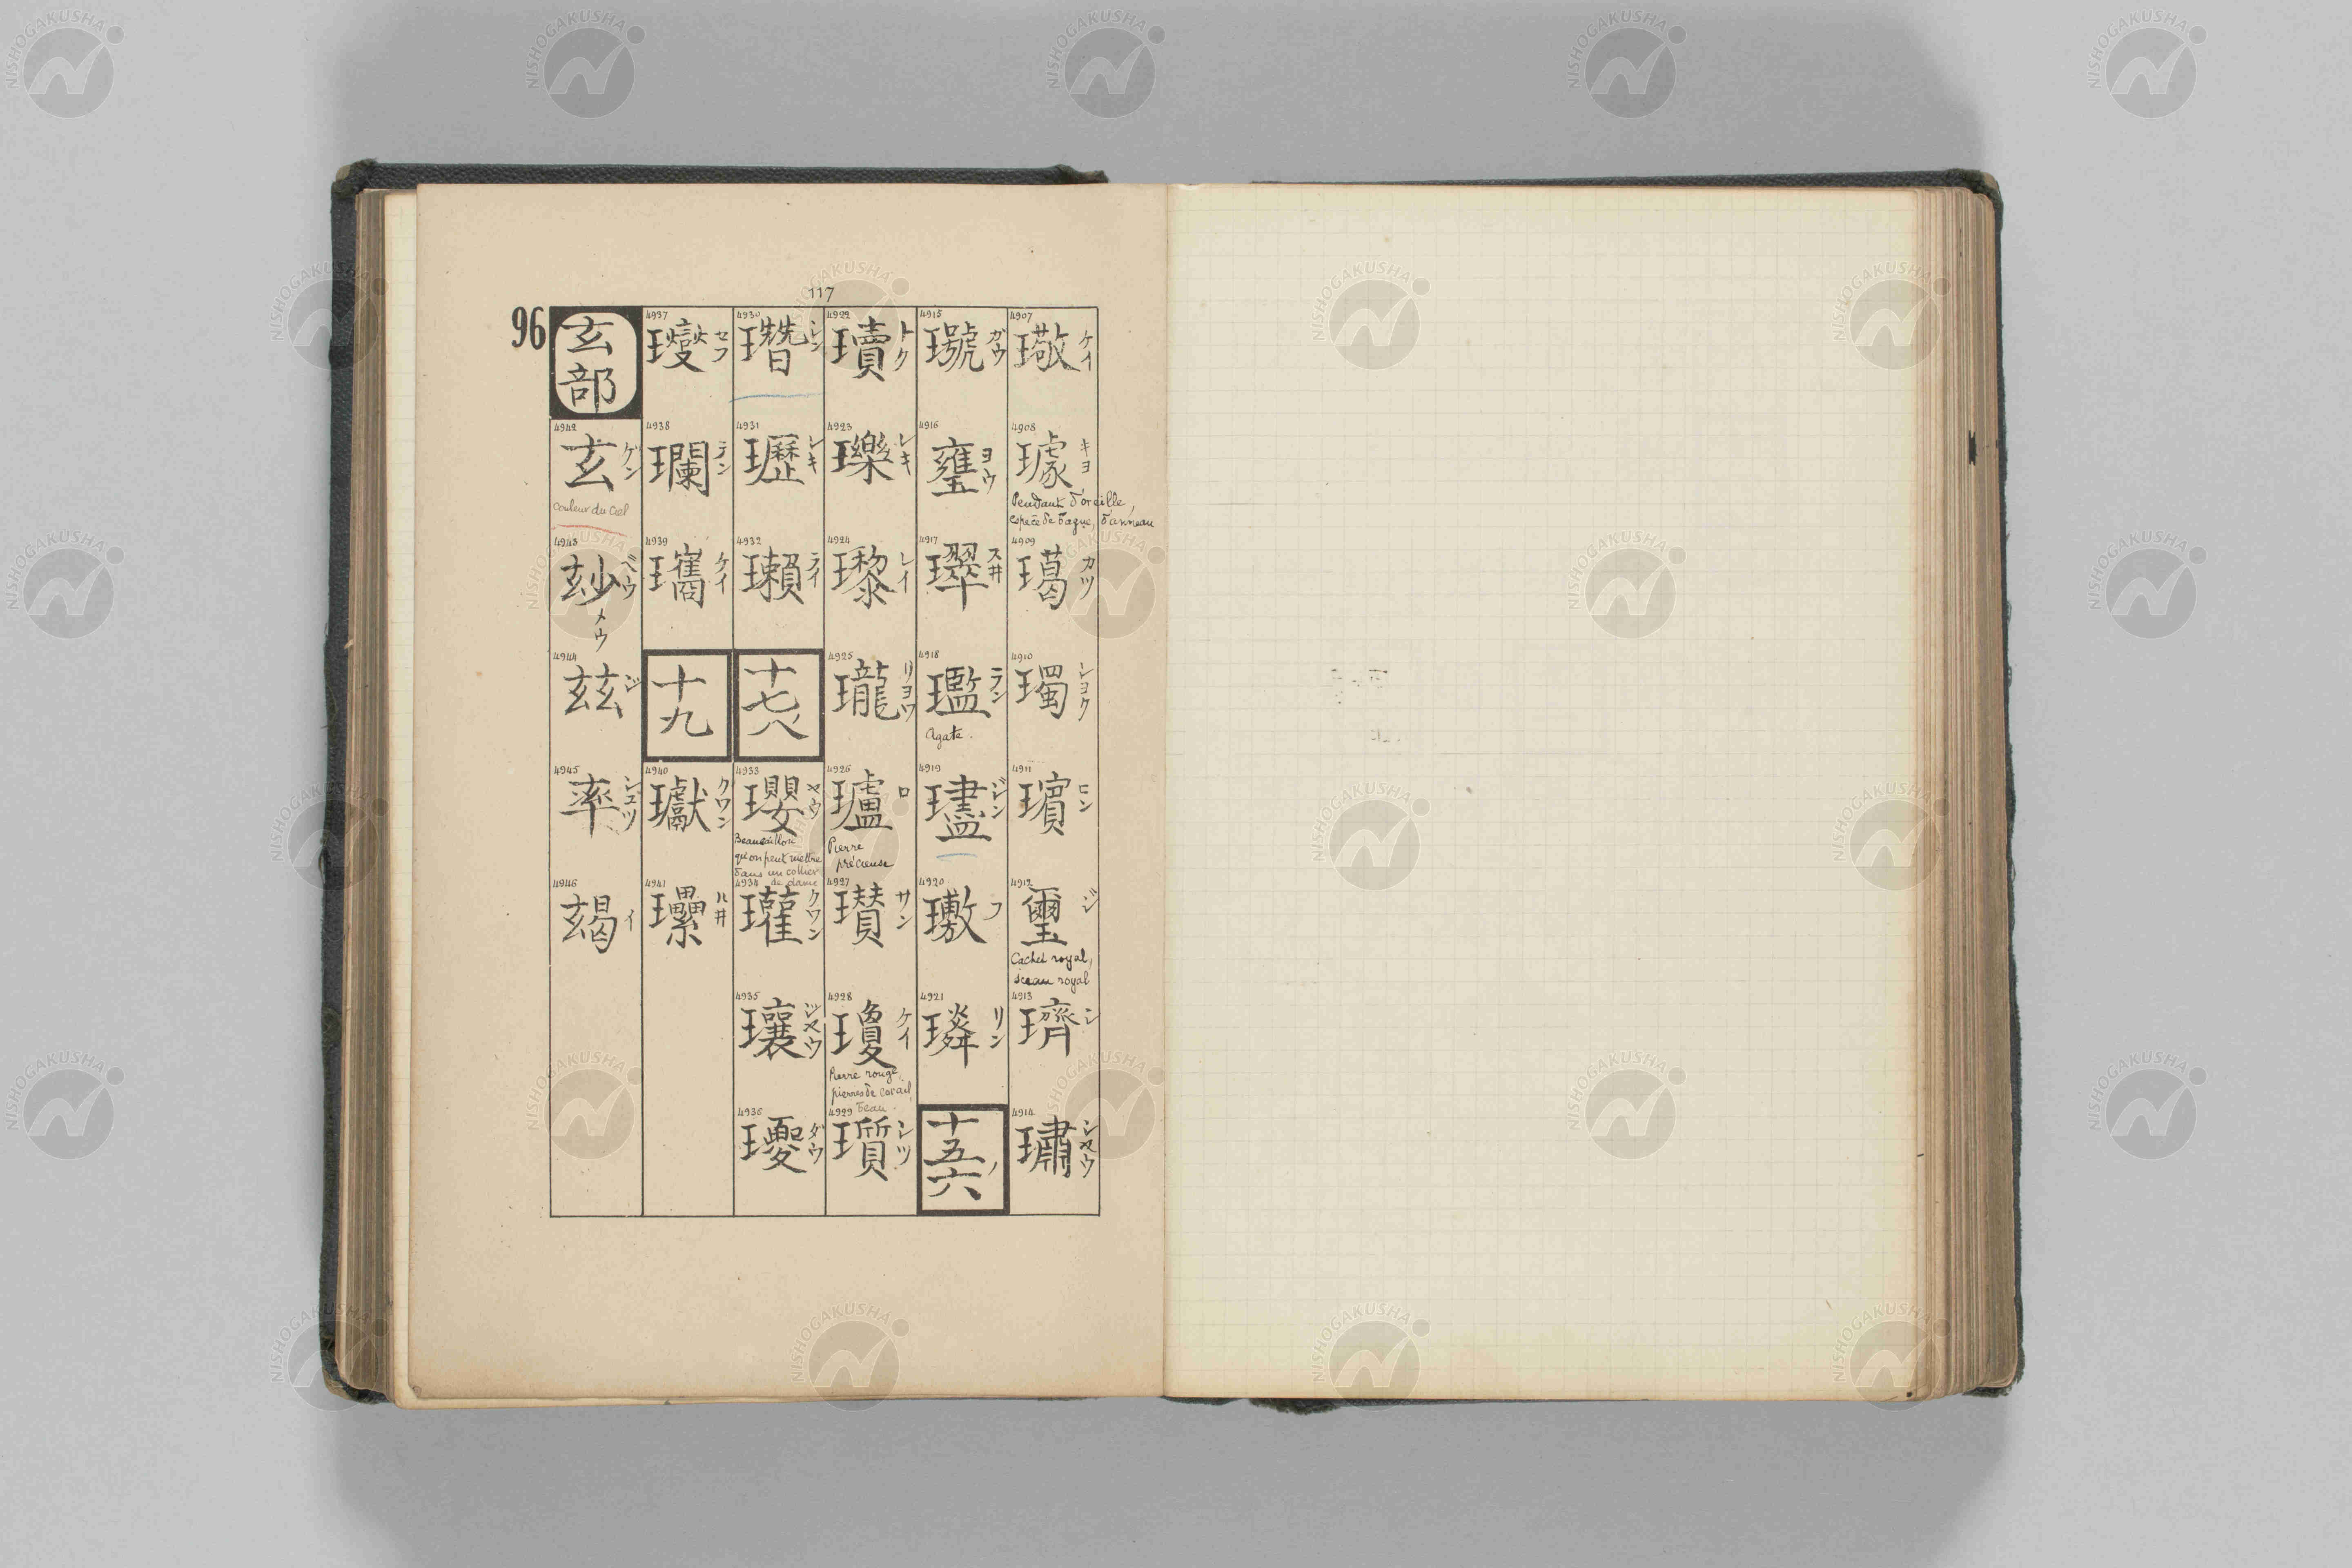 117
4907
璥
ケイ
4908
璩
キヨ
Pendant d'oreille,
espèce de bague, d'anneau
4909
瓎
カツ
4910
璛
シヨク
4911
璸
ヒン
4912
璽
ジ
Cachet royal,
sceau royal
4913
璾
シ
4914
璛
シヤウ
4915
ガウ
4916
ヨウ
4917
スヰ
4918
璼
ラン
Agate.
4919
璶
ジン
4920
フ
4921
璘
リン
十五六
4922
瓄
トク
4923
瓅
レキ
4924
瓈
レイ
4925
瓏
リヨウ
4926
瓐
ロ
Pierre
précieuse
4927
瓚
サン
4928
瓊
ケイ
Pierre rouge,
pierres de corail,
beau.
4929
瓆
シツ
4930
シン
4931
瓑
レキ
4932
瓎
ライ
十七八
4933
瓔
ヤウ
Beau caillou
qu'on peut mettre
dans un collier
de dame
4934
瓘
クワン
4935
瓖
ジヤウ
4936
ダウ
4937
セフ
4938
瓓
ラン
4939
瓗
ケイ
十九
4940
クワン
4941
ルヰ
96
玄部
4942
玄
ゲン
couleur du ciel
4943
玅
ベウ
メウ
4944
玆
ジ
4945
率
シユツ
4946
イ
NISHOGAKUSHA